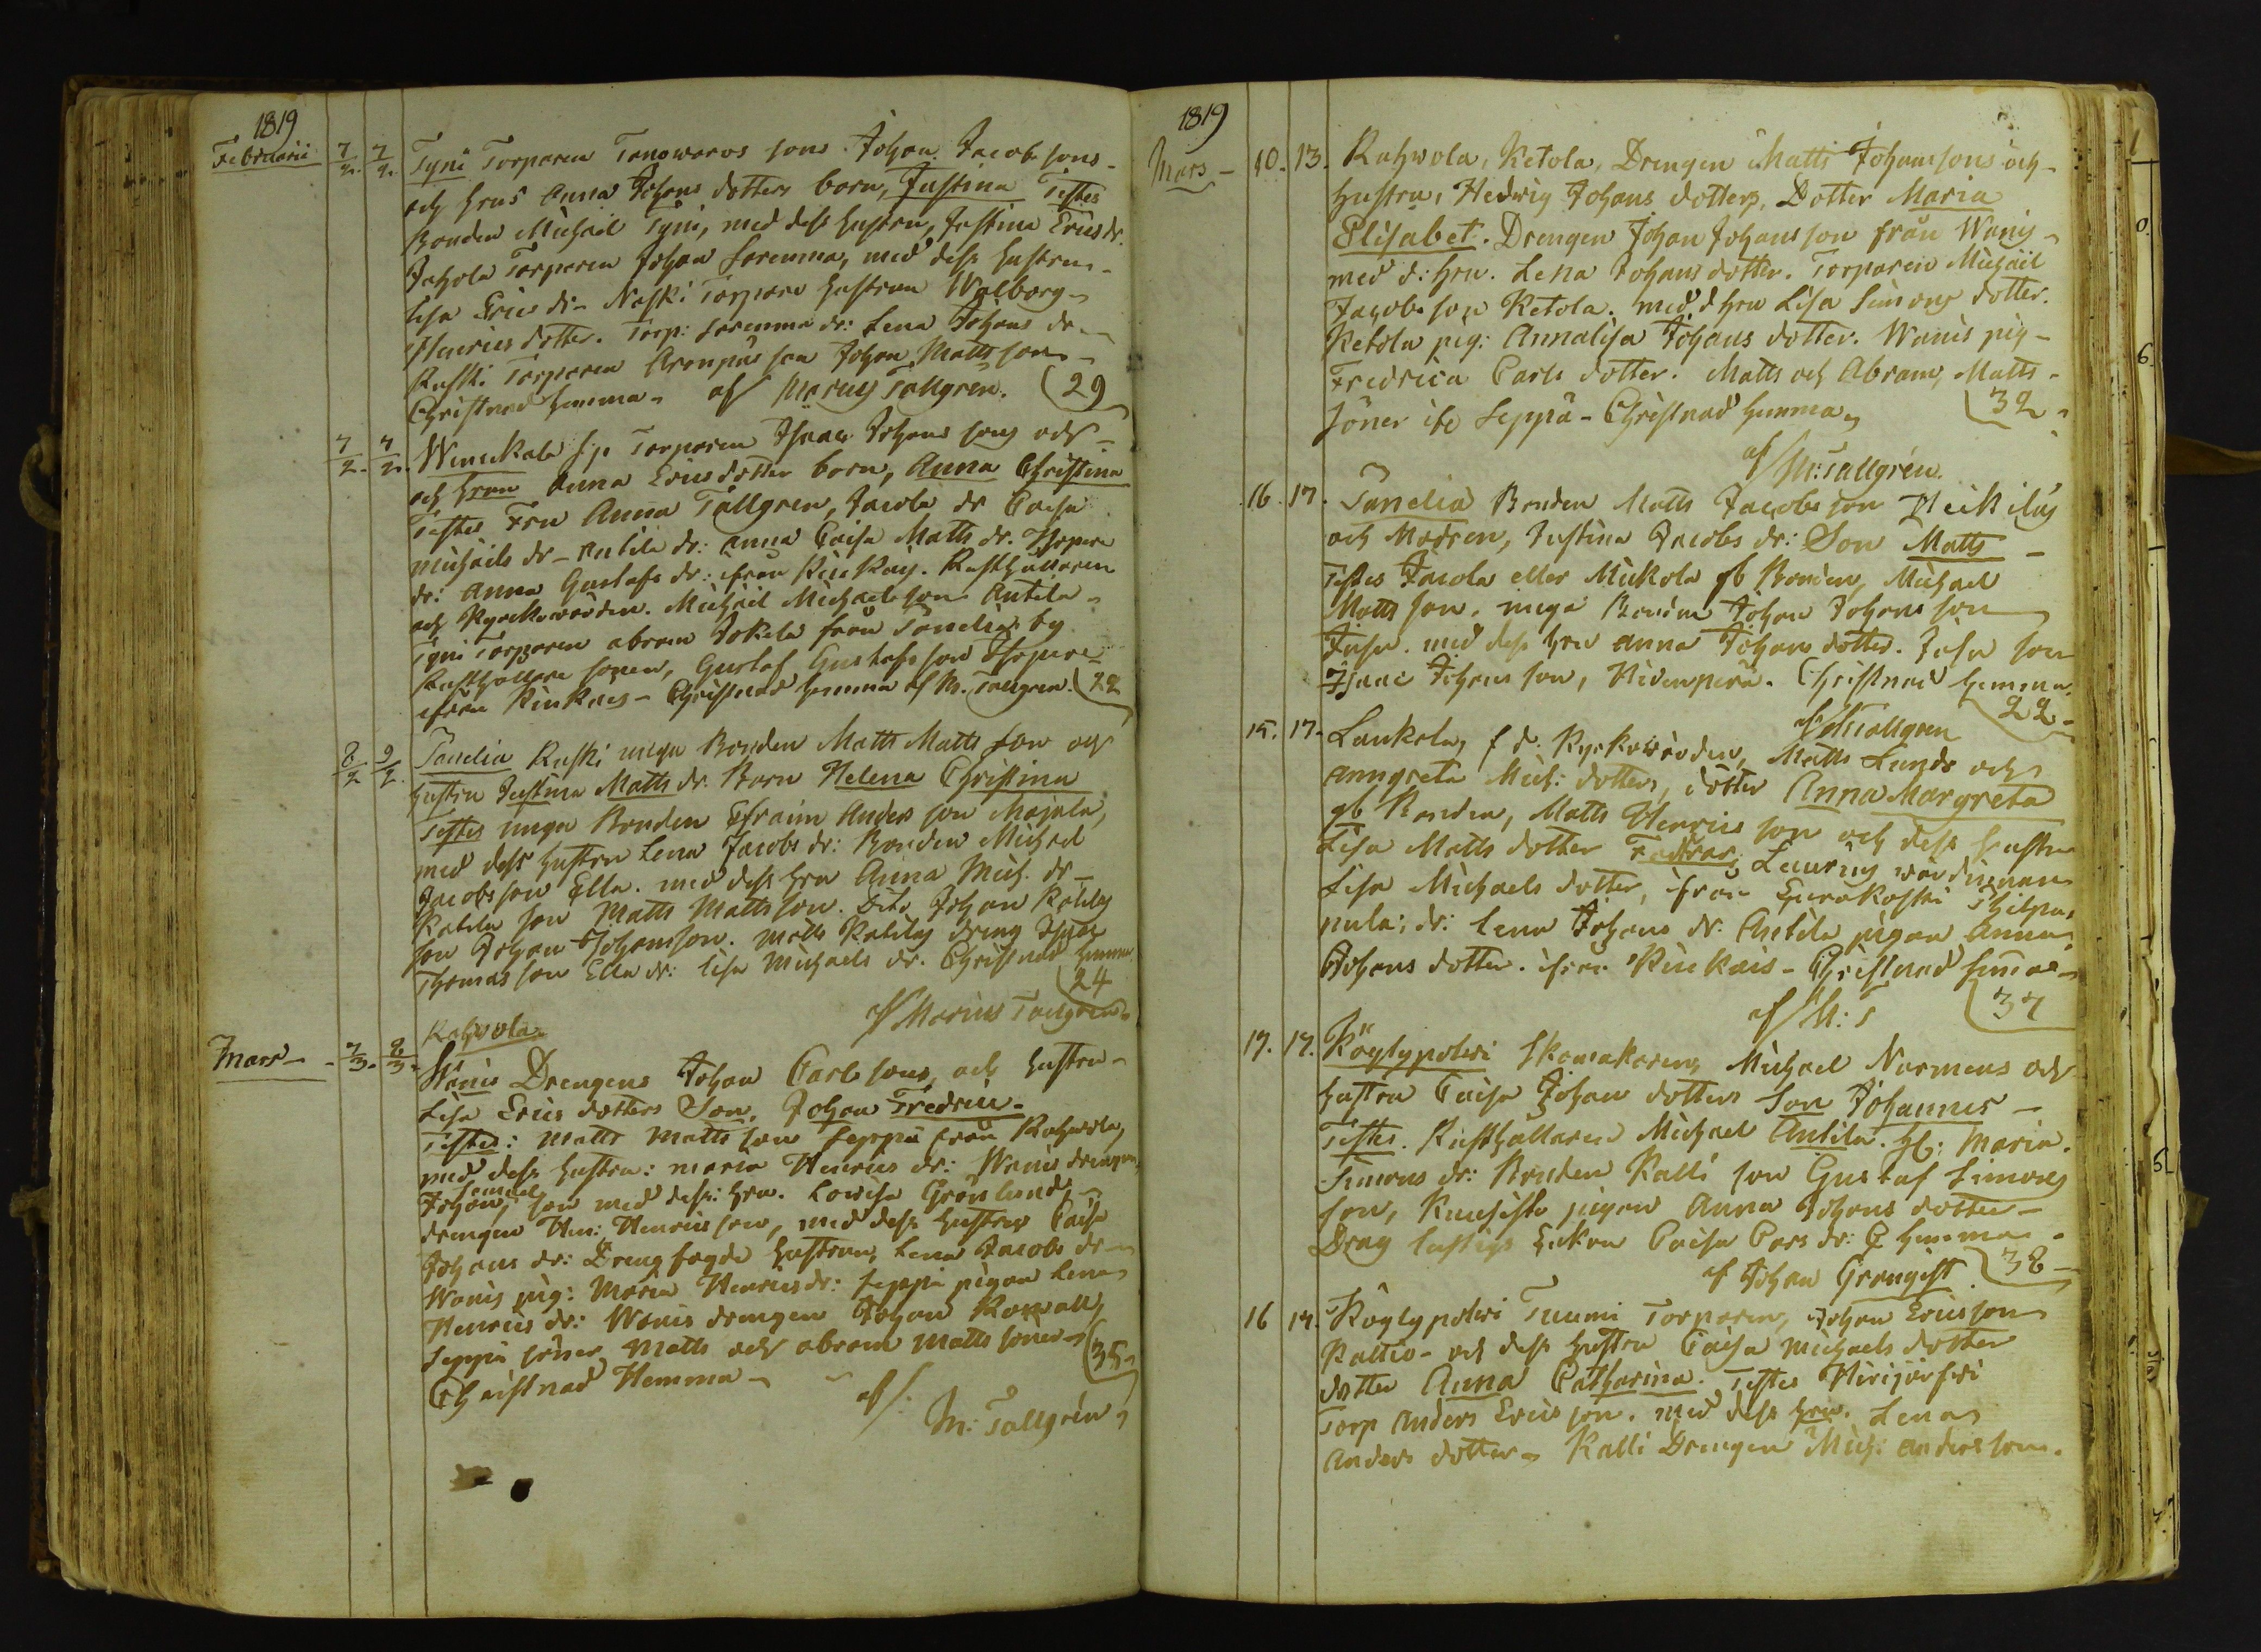 1819
Februarii 7/2. 7/2. Tyni Torparen Tanowaros sons Johan Jacob sons
och hrus Anna Johans dotters barn, Justina Testes
Bonden Michael Tyni, med dess hustru, Justina Erics dr.
Jahola Torparen Johan Loremma, med dess hustru
Lisa Erics dr Naski Torpare hustrun Walborg
Henrics dotter. Torp: Loremma dr: Lena Johans dr
Raski Torparen son Johan Matts son
Christnad hemma af Marcus Tallgren. (29
7/2. 7/2. Torparen Isaac Johans sons och
och hrun Anna Ericsdotter barn, Anna Christina
Testes Fru Anna Tallgren, Jacola dr Caisa
Michaels dr - Antila dr: Anna Caisa Matts dr.
dr: Anna Gustafs dr: ifrån Kiukais. Rusthållaren
och Kyrckowärden. Michael Michaels son Antila
Tyni Torparen Abram Jokela från Panelia by
Rusthållare sonen, Gustaf Gustafs son
ifrån Kiukais - Christnad hemma af M. Tallgren. (22
8/2 9/2. Panelia Raski unga Bonden Matts Matts son och
hustru Justina Matts dr. Barn Helena Christina
Testes unga Bonden Efraim Anders son Majala,
med dess hustru Lena Jacobs dr: Bonden Michael
Jacobs son Ella. med dess hru Anna Mich. dr
Katila son Matts Mattsson. Dito Johan Katilas
son Johan Johansson. Matts Katilas dräng Isaac
Thomas son Ella dr: Lisa Michaels dr. Christnad hemma
(24
af Marcus Tallgren
Rahwola
Mars 7/3. 8/3. Wanis Drengens Johan Carls sons och hustru
Lisa Erics dotters Son, Johan Fredric.
Testes: Matts Matts son Seppä från Rahwola,
med dess hustru: Maria Henrics dr: Wanis drengen,
Johan Samuel son med dess: hru. Lowisa Grönlund,
drengen Hen: Henrics son, med dess hustru Caisa
Johans dr: Dreng fogde hustrun, Lena Jacobs dr
Wanis pig: Maria Henricsdr: Seppä pigan Lena
Henrics dr: Wanis drengen Johan
Seppä söner, Matts och Abram Matts söner (35
Christnad Hemma
af/: M: Tallgrén
1819
Mars 10. 13. Rahwola, Ketola, Drengen Matti Johanssons och
hustru, Hedwig Johans dotters, Dotter Maria
Elisabet. Drengen Johan Johans son från Wanis
med d: hru. Lena Johans dotter. Torparen Michael
Jacobs son Ketola. med d hru Lisa Simons dotter.
Ketola pig: Annalisa Johans dotter. Wanis pig
Fredrica Carls dotter. Matts och Abram, Matts
söner ibe Seppä - Christnad hemma (32
af/M: Tallgrén.
16. 17. Panelia Bonden Matts Jacobs son Heikilas
och Modren, Justina Jacobs dr: Son Matts
Testes Jacola eller Mickola gb Bonden, Michael
Matts son, unga Bonden Johan Johans son
Jusa. med dess hru Anna Johans dotter. Jusa son
Isaac Johans son, Christnad hemma.
22
af M Tallgren
15. 17. Laukola, f d. Kyrkowärden, Matts Lunds och
Anngreta Mich: dotters, dotter Anna Margreta
gb Bonden, Matts Henrics son och dess hustru
Lisa Matts dotter Laurinus wärdinnan
Lisa Michaels dotter, ifrån Eurakoski
dr: Lena Johans dr: Antila pigan Anna
Johans dotter. ifrån Kiukais - Christnad hemma
af M: T (37
17. 19. Köylypolvi Skomakaren, Michael Normens och
hustru Caisa Johans dotters Son Johannes
Testes. Rusthållaren Michael Antila. H: Maria.
Simons dr: Bonden Kalli son Gustaf Simons
son, pigan Anna Johans dotter
Drag Enkan Caisa Cars dr: C hemma
af Johan Granqist. (38
16 19. Köylypolvi Tuumi Torparen, Johan Ericsson
och dess hustru Caisa Michaels dotter
dotter Anna Catharina. Testes
Torp Anders Erics son. med dess hru. Lena
Anders dotter Kalli Drengen Mich: Anders son.